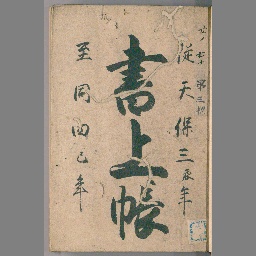 従天保三辰年
書上帳
至同四巳年